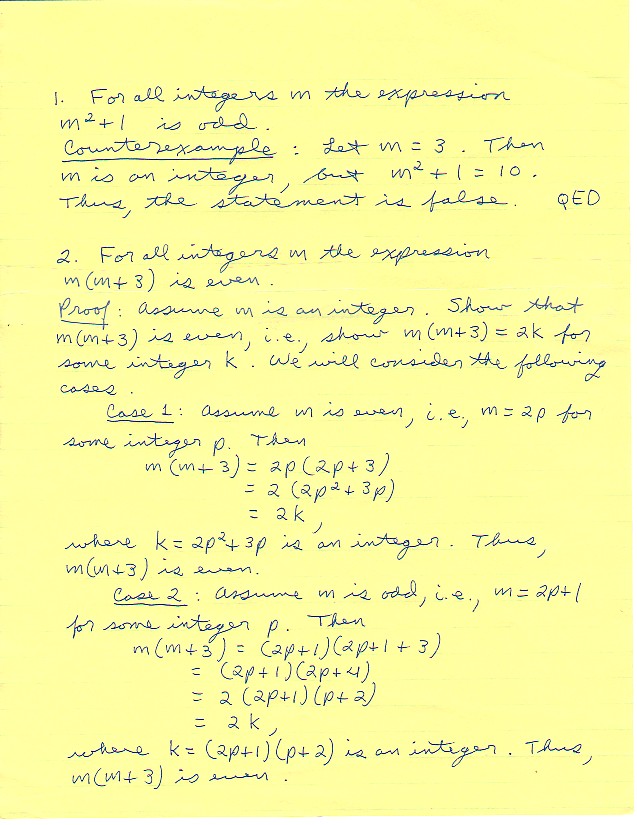 1. For all integers m the expression
m²+1 is odd.
Counterexample: Let m = 3. Then
m is an integer, but m² + 1 = 10.
Thus, the statement is false. QED
2. For all integers m the expression
m(m+3) is even.
Proof: Assume m is an integer. Show that
m(m+3) is even, i.e., show m(m+3) = 2k for
some integer k. We will consider the following
cases.
Case 1: Assume m is even, i.e., m = 2p for
some integer p. Then
m(m+3) = 2p(2p+3)
= 2(2p²+3p)
= 2k,
where k = 2p²+3p is an integer. Thus,
m(m+3) is even.
Case 2: Assume m is odd, i.e., m = 2p+1
for some integer p. Then
m(m+3) = (2p+1)(2p+1+3)
= (2p+1)(2p+4)
= 2(2p+1)(p+2)
= 2k,
where k = (2p+1)(p+2) is an integer. Thus,
m(m+3) is even.